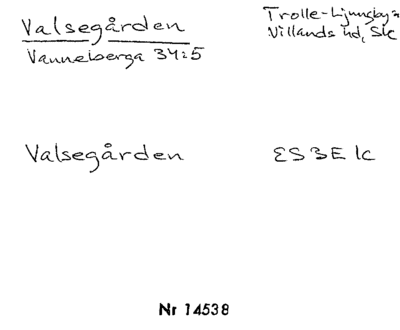 Valsegården
Vanneberga 34:5
Trolle-Ljungby sn
Villands hd, Sk
Valsegården
ES3E 1c
Nr 14538